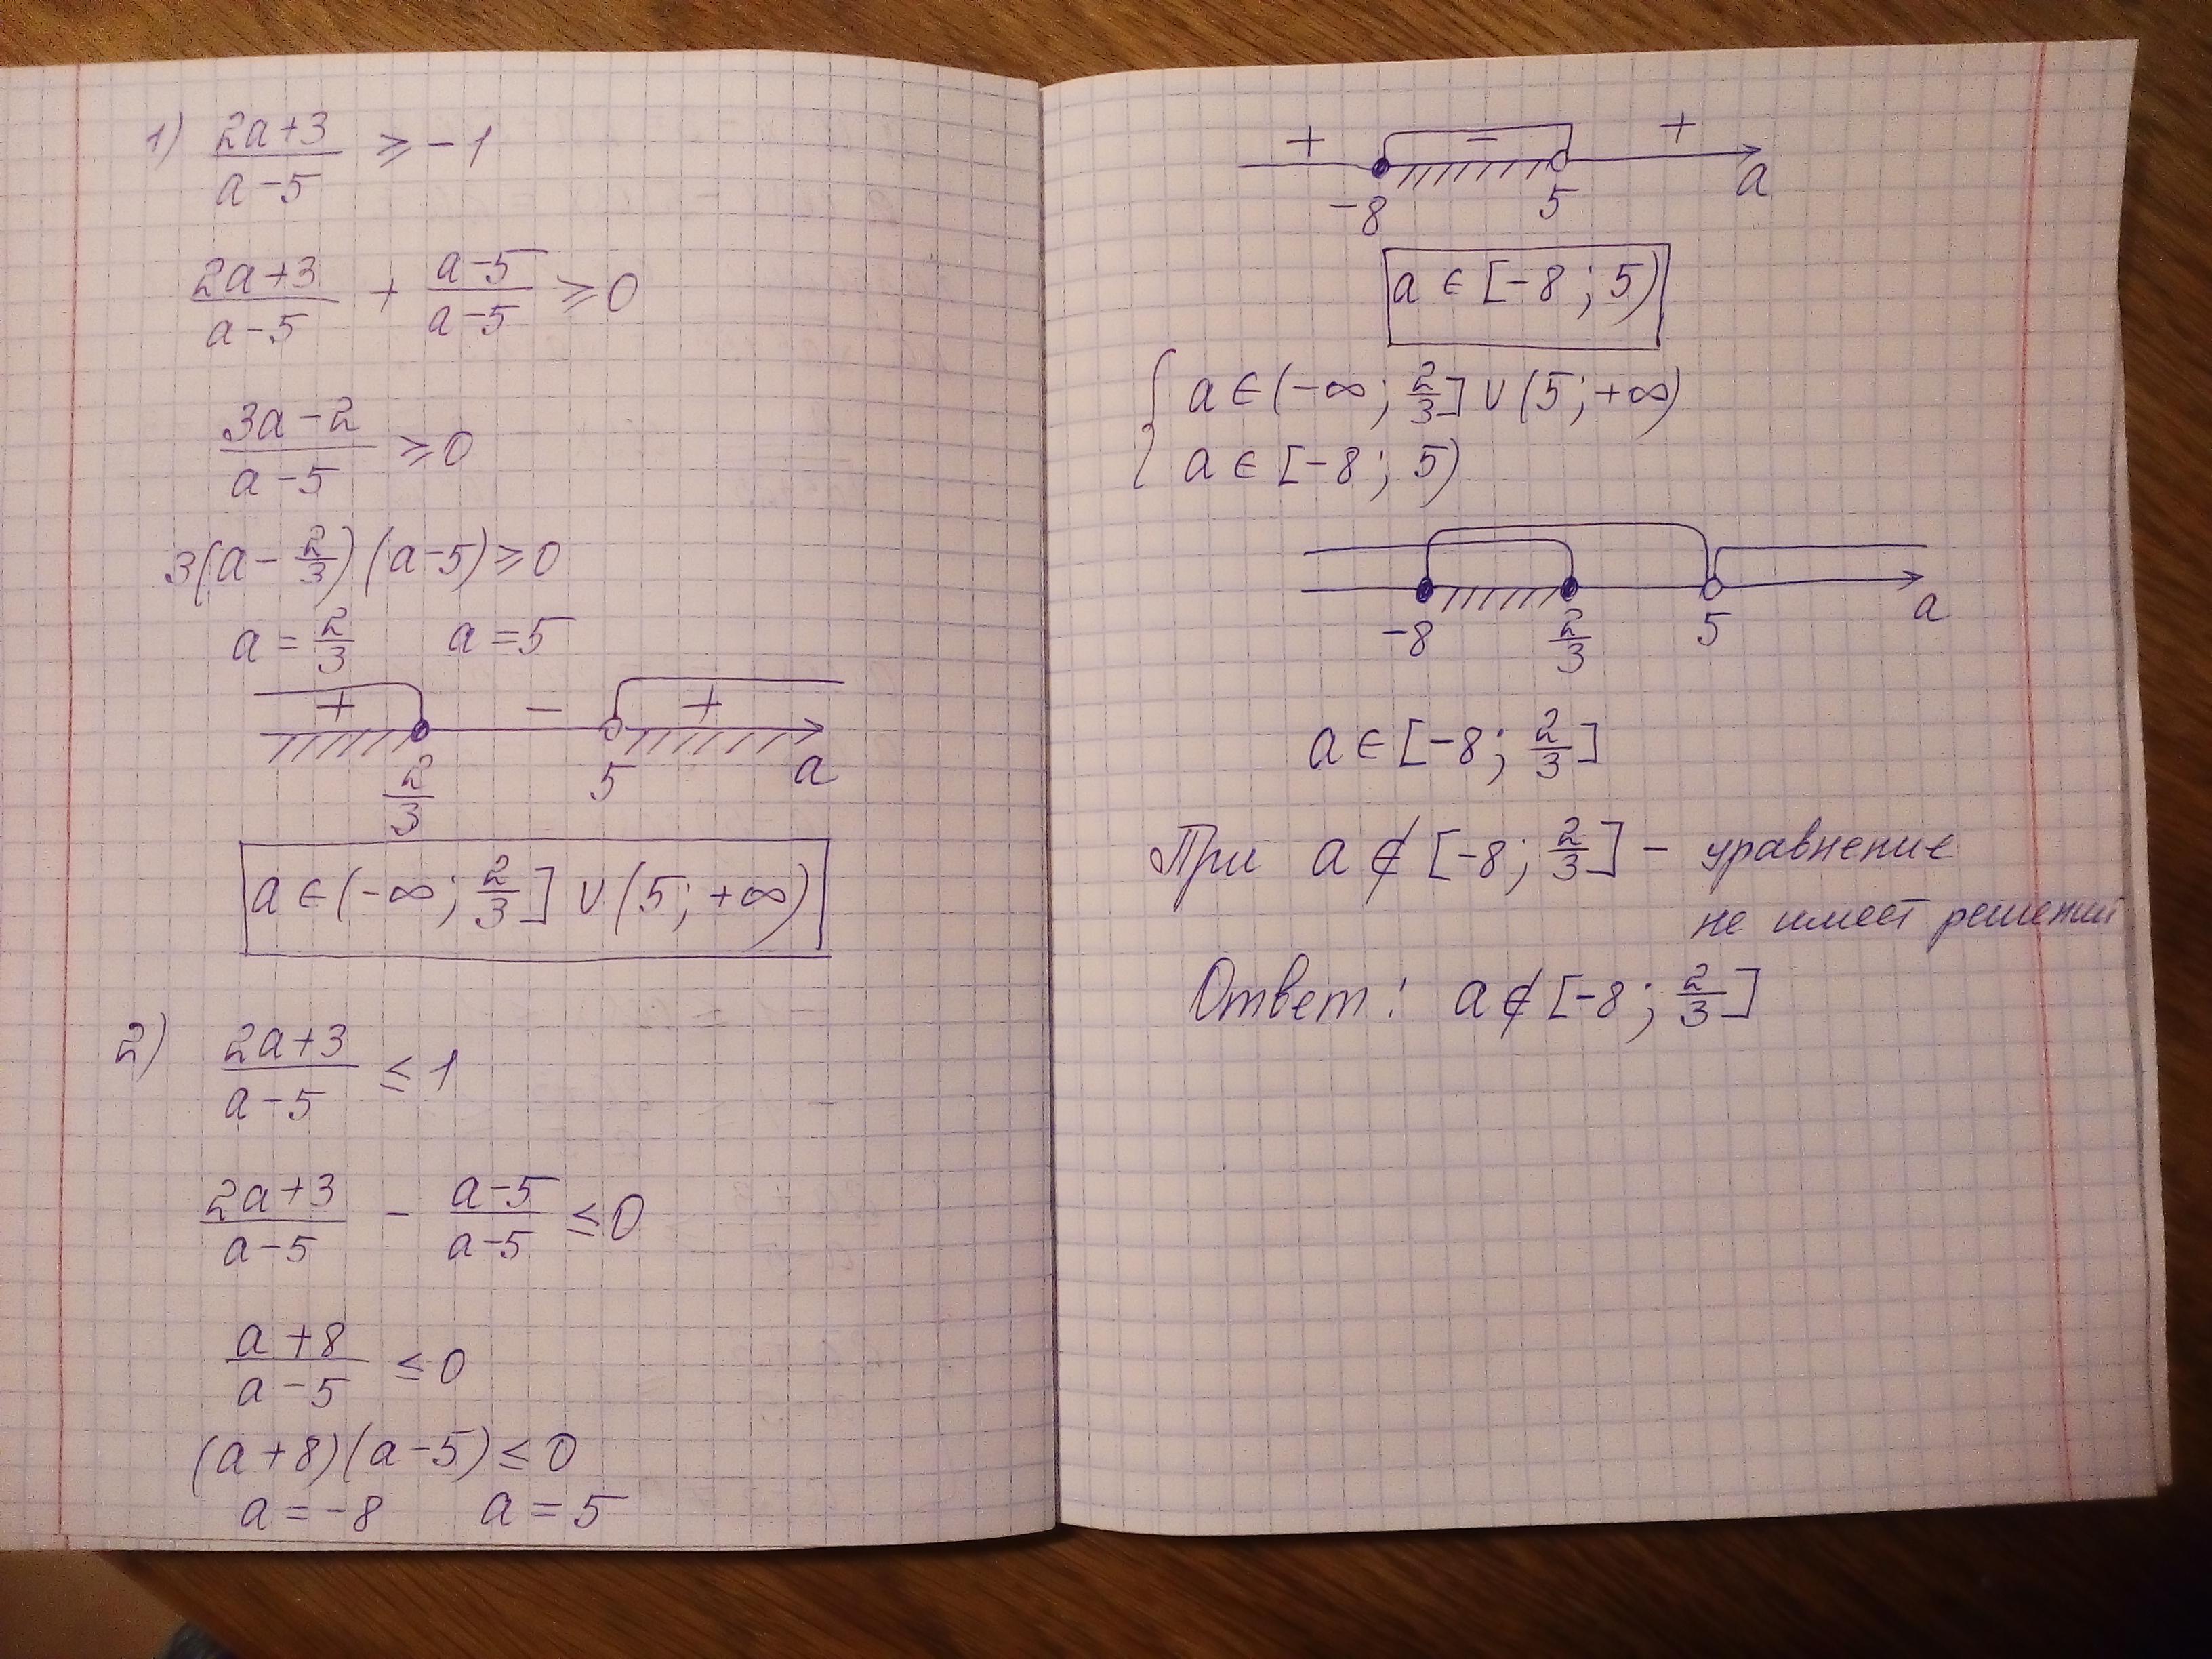 1) (2a+3)/(a-5) ⩾ -1
(2a+3)/(a-5) + (a-5)/(a-5) ⩾ 0
(3a-2)/(a-5) ⩾ 0
3(a - 2/3)(a-5) ⩾ 0
a = 2/3 a = 5
+ - +
2/3 5 a
a ∈ (-∞; 2/3] ∪ (5; +∞)
2) (2a+3)/(a-5) ≤ 1
(2a+3)/(a-5) - (a-5)/(a-5) ≤ 0
(a+8)/(a-5) ≤ 0
(a+8)(a-5) ≤ 0
a = -8 a = 5
+ - +
-8 5 a
a ∈ [-8; 5)
{ a ∈ (-∞; 2/3] ∪ (5; +∞)
a ∈ [-8; 5)
-8 2/3 5 a
a ∈ [-8; 2/3]
При a ∉ [-8; 2/3] - уравнение
не имеет решений
Ответ: a ∉ [-8; 2/3]